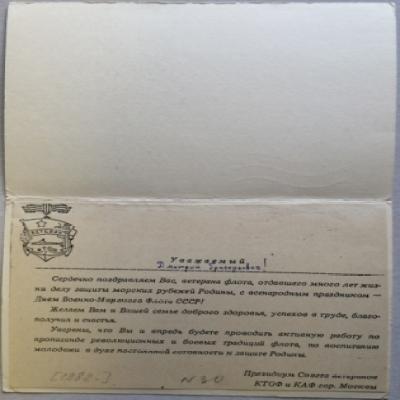 ВЕТЕРАН
Уважаемый
Дмитрий Григорьевич!
Сердечно поздравляем Вас, ветерана флота, отдавшего много лет жиз-
ни делу защиты морских рубежей Родины, с всенародным праздником —
Днем Военно-Морского Флота СССР!
Желаем Вам и Вашей семье доброго здоровья, успехов в труде, благо-
получия и счастья.
Уверены, что Вы и впредь будете проводить активную работу по
пропаганде революционных и боевых традиций флота, по воспитанию
молодежи в духе постоянной готовности к защите Родины.
Президиум Совета ветеранов
КТОФ и КАФ гор. Москвы